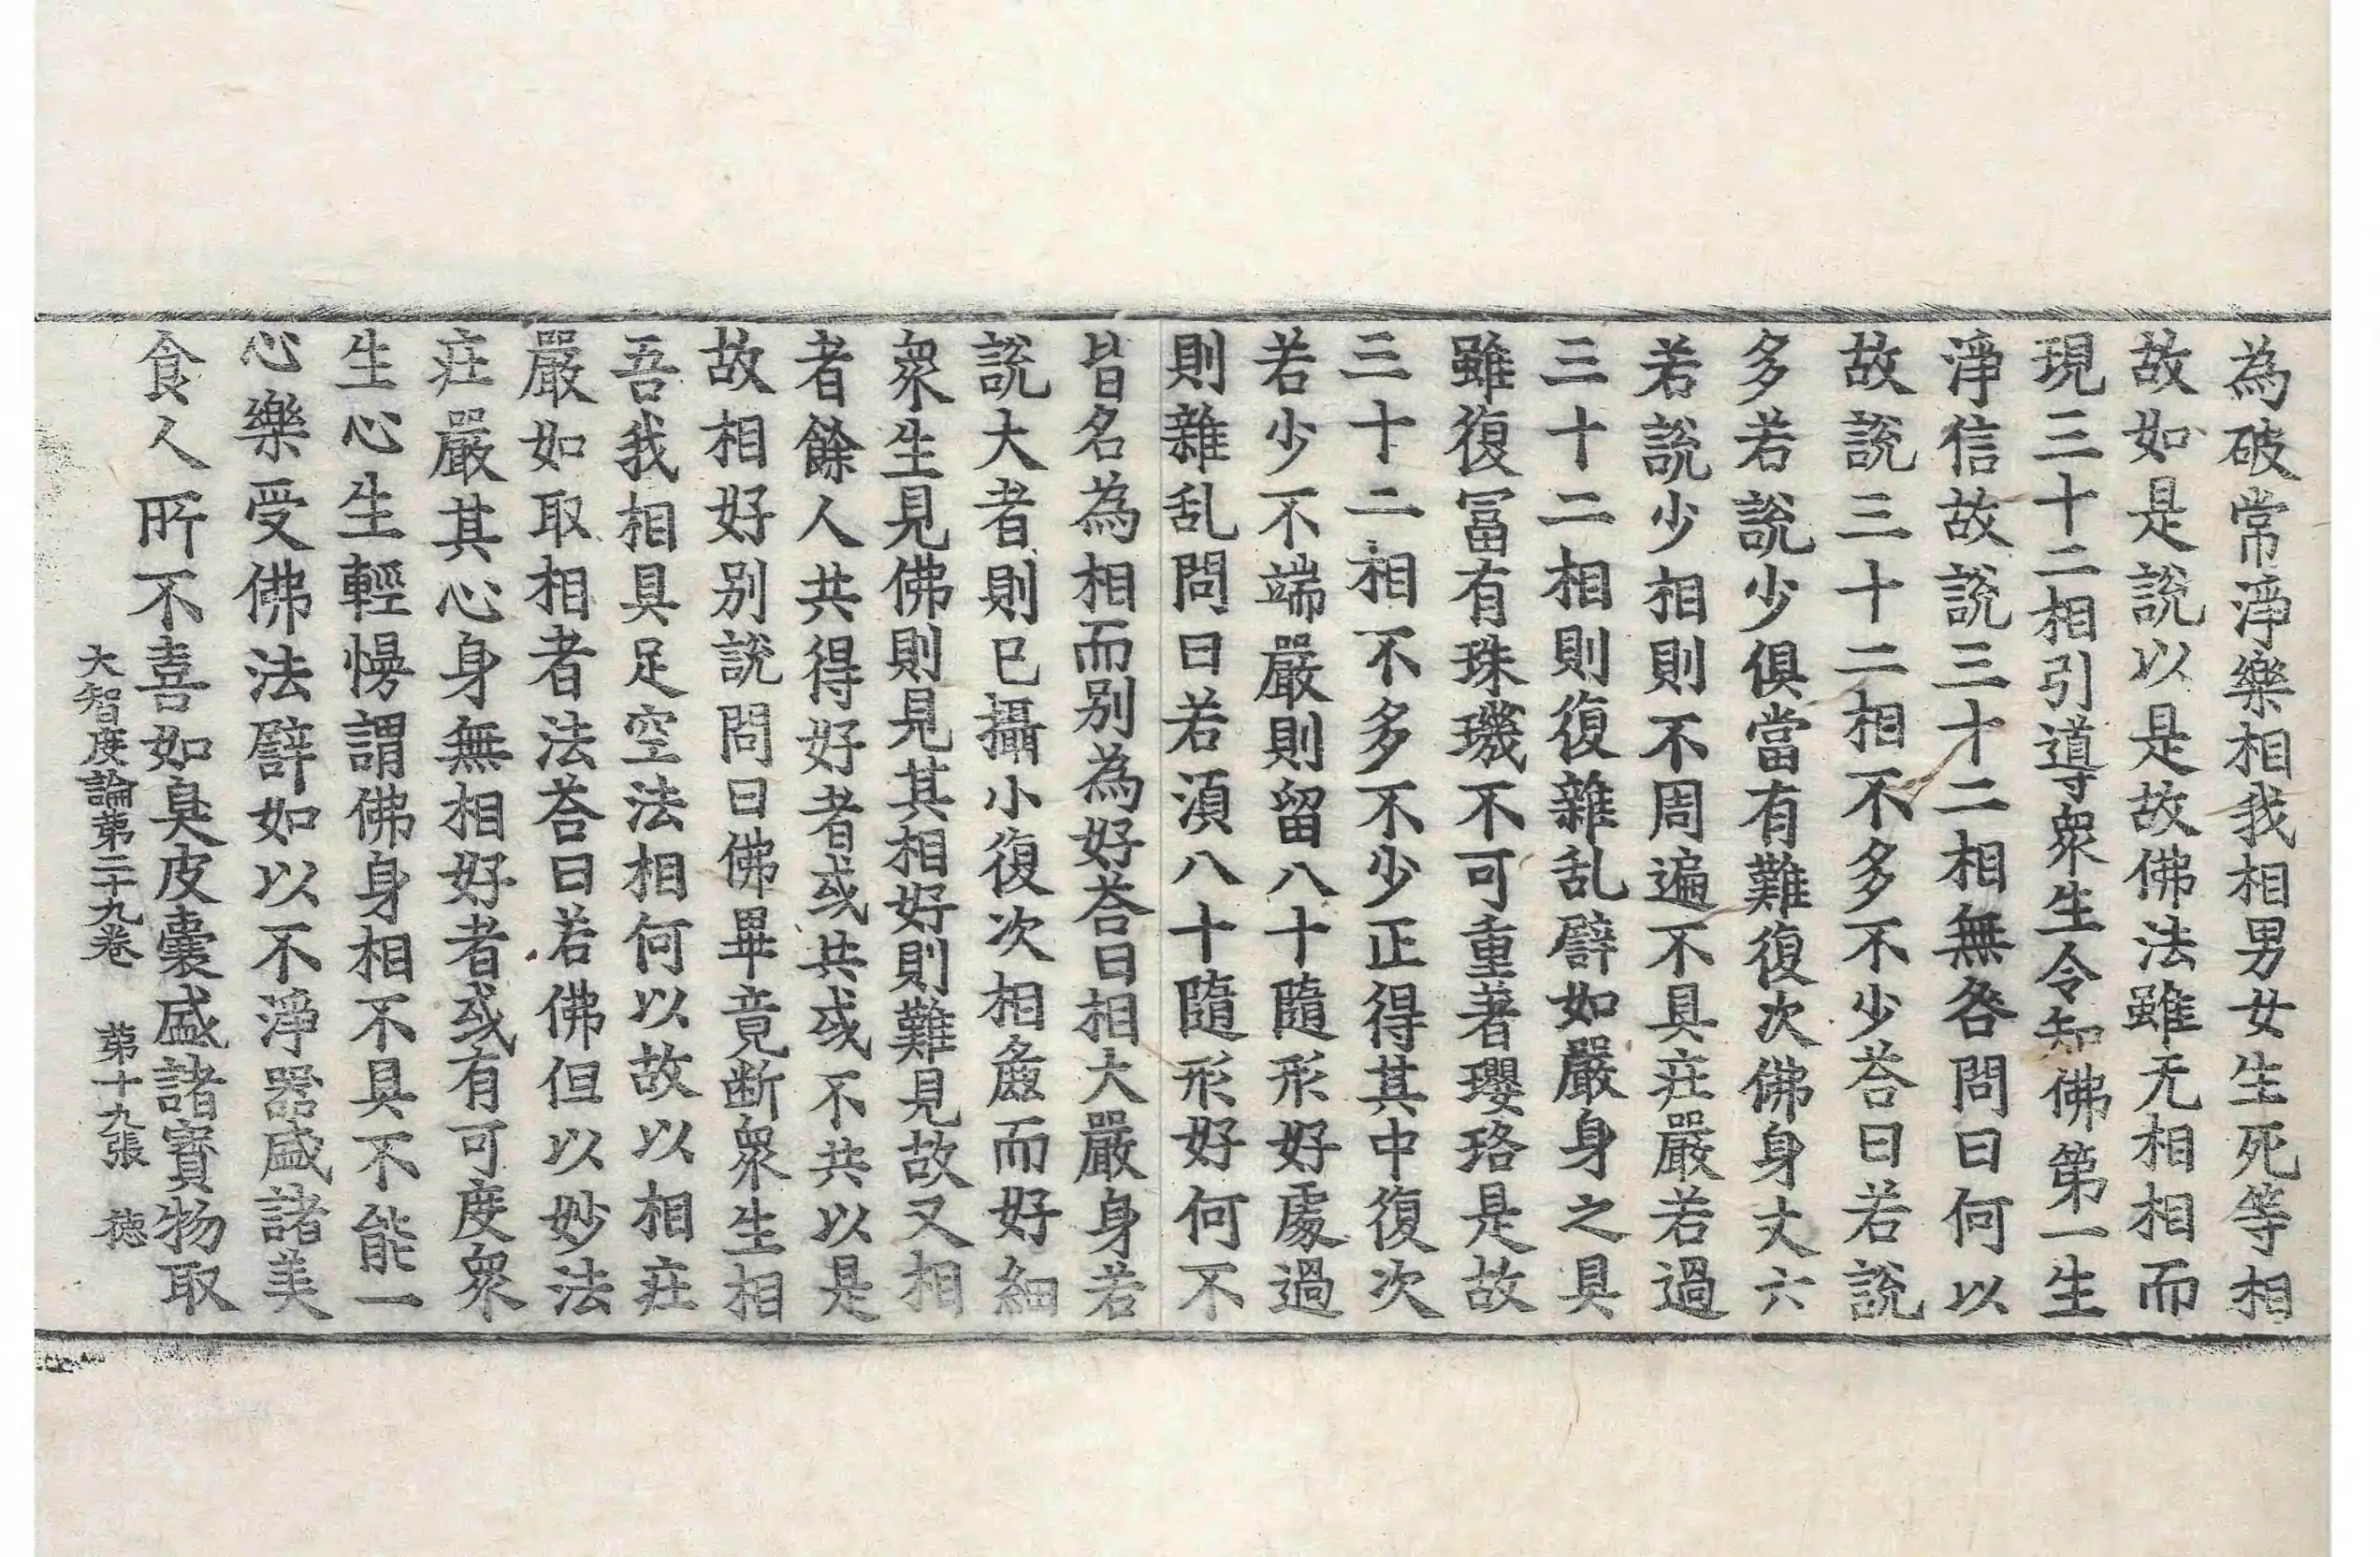 為破常淨樂相我相男女生死等相
故如是說以是故佛法雖无相相而
現三十二相引導衆生令知佛第一生
淨信故說三十二相無咎問曰何以
故說三十二相不多不少荅曰若說
多若說少俱當有難復次佛身丈六
若說少相則不周遍不具莊嚴若過
三十二相則復雜乱譬如嚴身之具
雖復冨有珠璣不可重著瓔珞是故
三十二相不多不少正得其中復次
若少不端嚴則留八十隨形好處過
則雜乱問曰若湏八十隨形好何不
皆名為相而別為好荅曰相大嚴身若
說大者則已攝小復次相麁而好細
衆生見佛則見其相好則難見故又相
者餘人共得好者或共或不共以是
故相好別說問曰佛畢竟断衆生相
吾我相具足空法相何以故以相莊
嚴如取相者法荅曰若佛但以妙法
莊嚴其心身無相好者或有可度衆
生心生輕慢謂佛身相不具不能一
心樂受佛法譬如以不淨器盛諸美
食人所不喜如臭皮囊盛諸寳物取
大智度論第二十九卷 第十九張 徳